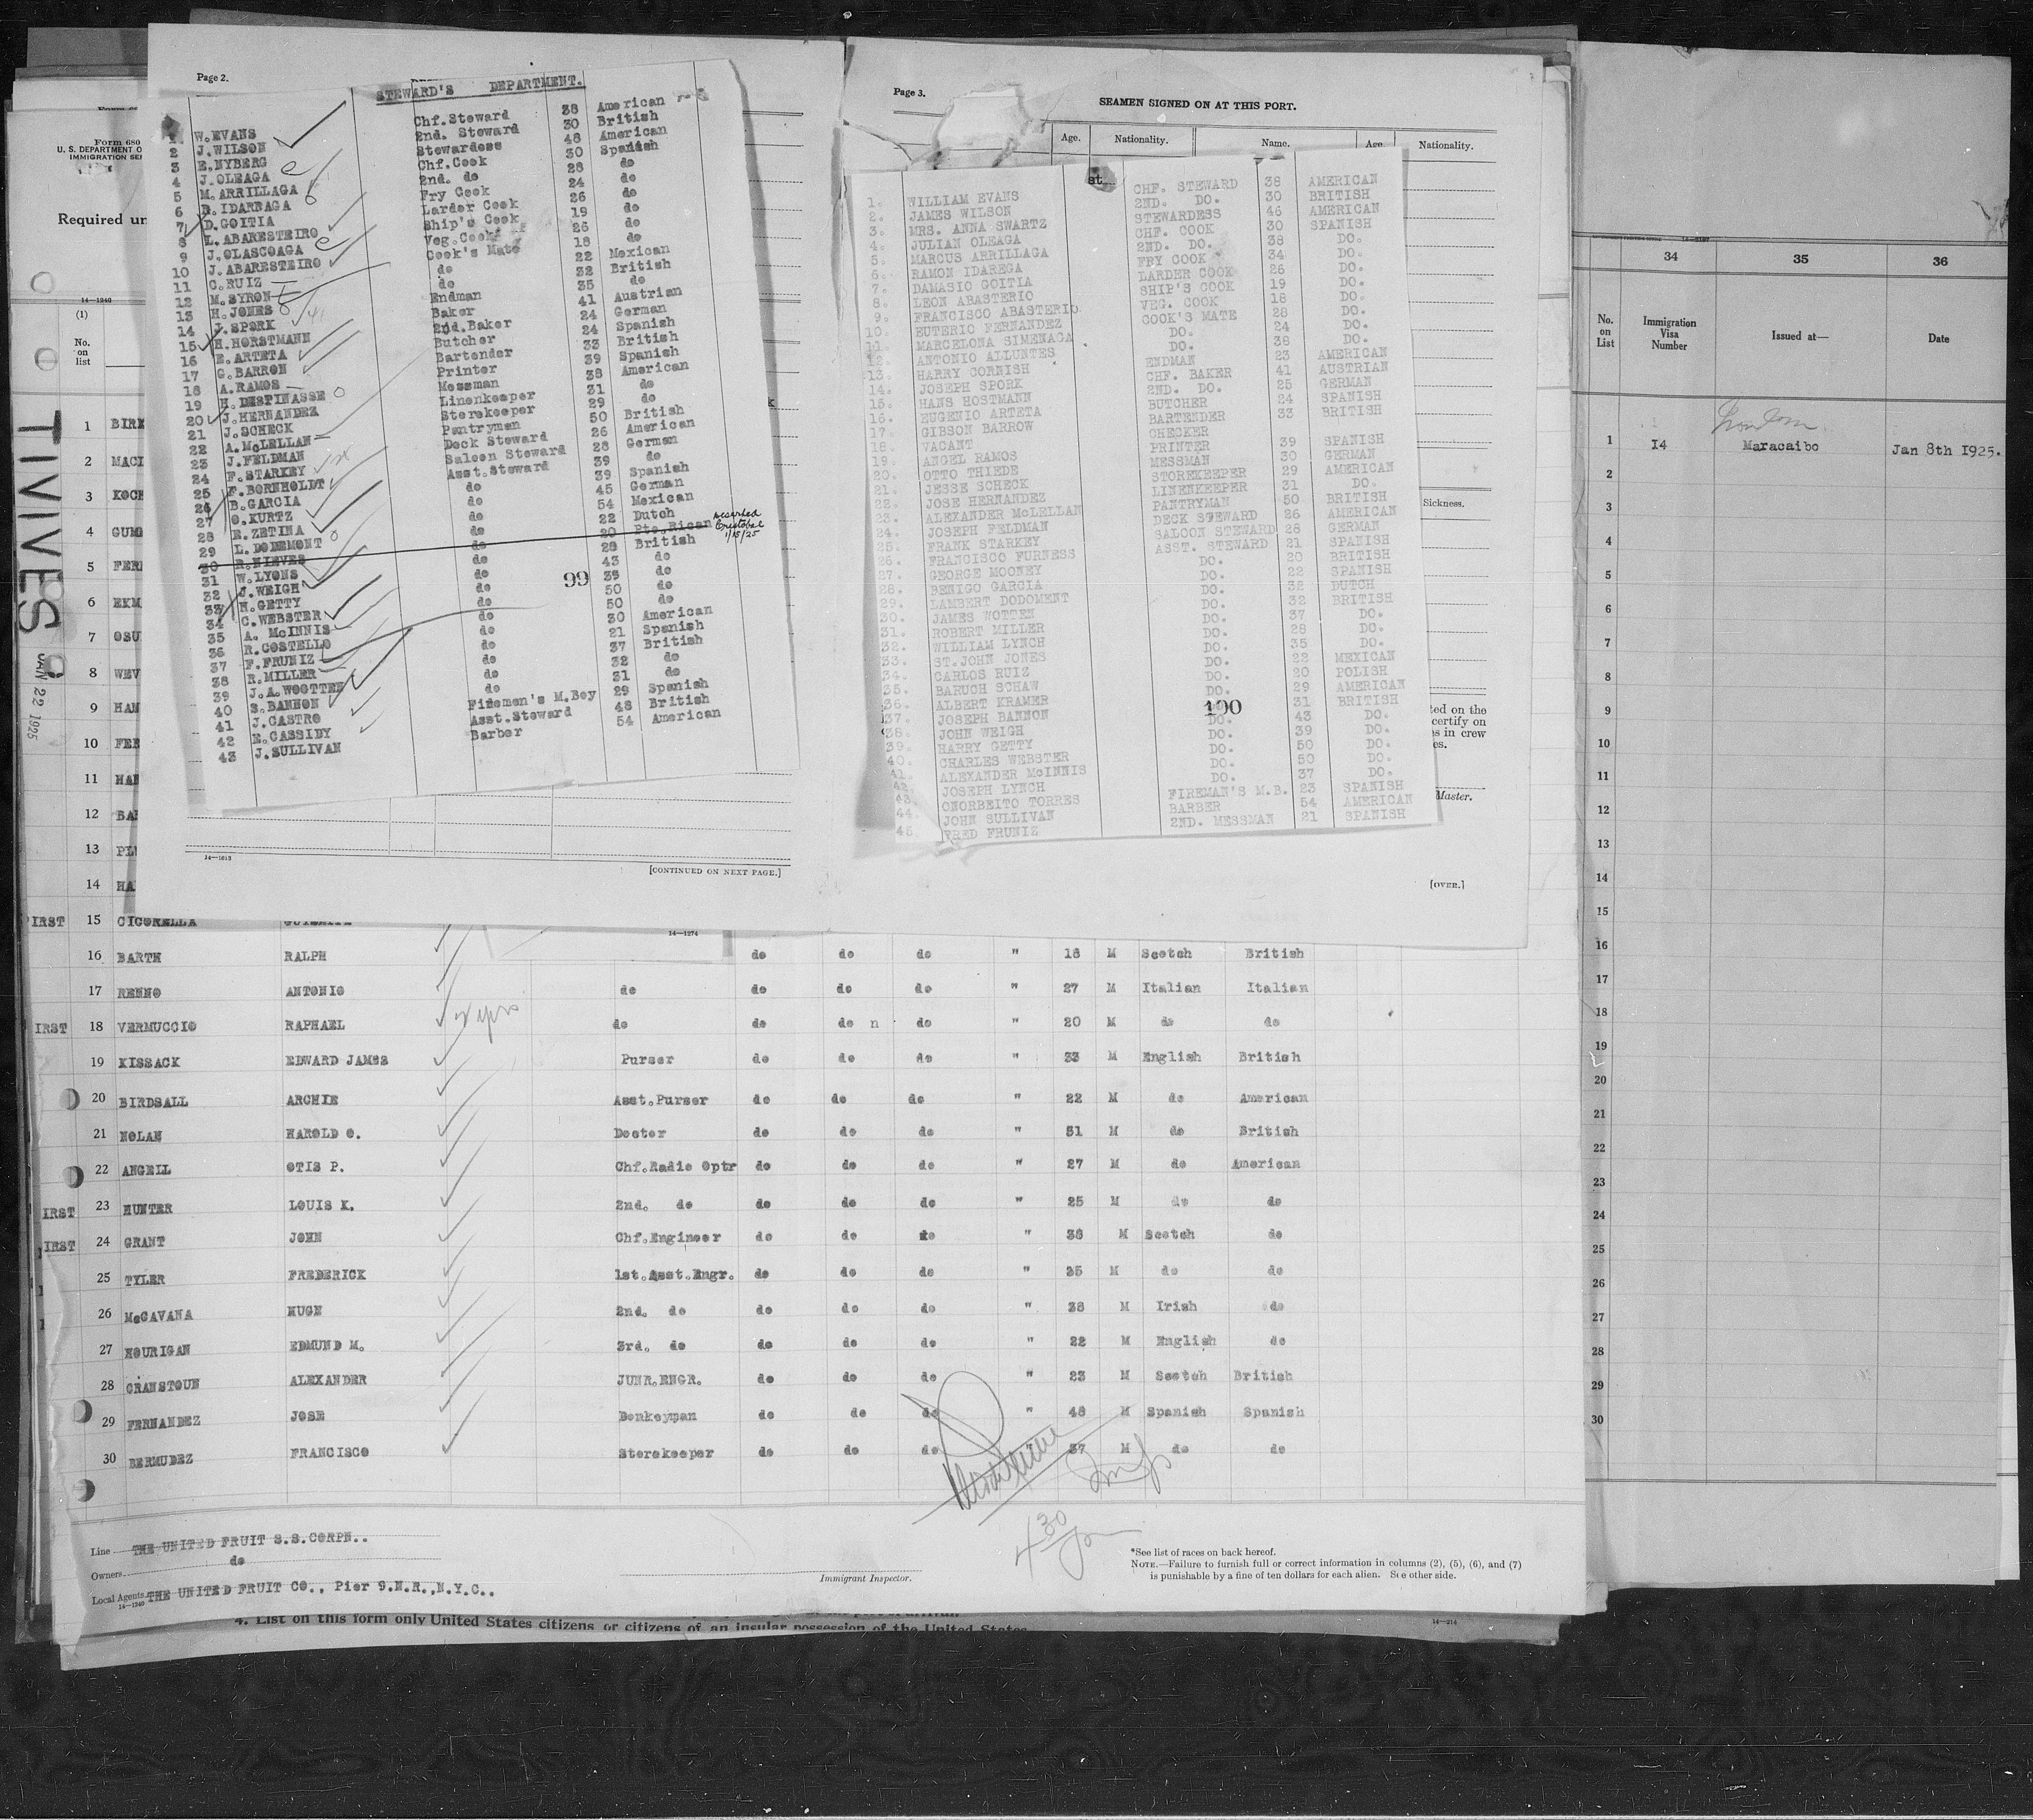 Page 2.
STEWARD'S DEPARTMENT.
1 W.EVANS Chf.Steward 38 American
2 J.WILSON 2nd. Steward 30 British
3 E.NYBERG Stewardess 48 American
4 J.OLEAGA Chf.Cook 30 Spanish
5 M.ARRILLAGA 2nd. do 28 do
6 R.IDARRAGA Fry Cook 24 do
7 D.GOITIA Larder Cook 26 do
8 L.ABARESTEIRO Ship's Cook 19 do
9 J.OLASCOAGA Veg.Cook 26 do
10 J.ABARESTEIRO Cook's Mate 18 do
11 C.RUIZ do 22 Mexican
12 M.SYRON do 32 British
13 H.JONES Endman 35 do
14 J.SPORK Baker 41 Austrian
15 H.HORSTMANN 2nd.Baker 24 German
16 E.ARTETA Butcher 24 Spanish
17 G.BARRON Bartender 33 British
18 A.RAMOS Printer 39 Spanish
19 H.DESPINASSE Messman 38 American
20 J.HERNANDEZ Linenkeeper 31 do
21 J.SCHECK Storekeeper 29 do
22 A.McLELLAN Pantryman 50 British
23 J.FELDMAN Deck Steward 26 American
24 F.STARKEY Saloon Steward 28 German
25 F.BORNHOLDT Asst.Steward 39 do
26 B.GARCIA do 39 Spanish
27 O.KURTZ do 45 German
28 R.ZETINA do 54 Mexican
29 L.DODEMONT do 22 Dutch
30 R.NIEVES do 20 Pto.Rican deserted Cristobal 1/15/25
31 W.LYONS do 28 British
32 J.WEIGH do 43 do
33 H.GETTY do 39 do
34 C.WEBSTER do 50 do
35 A. McINNIS do 50 do
36 R.COSTELLO do 30 American
37 F.FRUNIZ do 21 Spanish
38 R.MILLER do 37 British
39 J.A.WOOTTEN do 32 do
40 S.BANNON do 31 do
41 J.CASTRO Firemen's M.Boy 29 Spanish
42 E.CASSIDY Asst.Steward 48 British
43 J.SULLIVAN Barber 54 American
99
14—1613
[CONTINUED ON NEXT PAGE.]
Page 3.
SEAMEN SIGNED ON AT THIS PORT.
Age. Nationality. Name. Age. Nationality.
1. WILLIAM EVANS CHF. STEWARD 38 AMERICAN
2. JAMES WILSON 2ND. DO. 30 BRITISH
3. MRS. ANNA SWARTZ STEWARDESS 46 AMERICAN
4. JULIAN OLEAGA CHF. COOK 30 SPANISH
5. MARCUS ARRILLAGA 2ND. DO. 38 DO.
6. RAMON IDAREGA FRY COOK 34 DO.
7. DAMASIO GOITIA LARDER COOK 26 DO.
8. LEON ABASTERIO SHIP'S COOK 19 DO.
9. FRANCISCO ABASTERIO VEG. COOK 18 DO.
10. EUTERIO FERNANDEZ COOK'S MATE 28 DO.
11. MARCELONA SIMENAGA DO. 24 DO.
12. ANTONIO ALLUNTES DO. 38 DO.
13. HARRY CORNISH ENDMAN 23 AMERICAN
14. JOSEPH SPORK CHF. BAKER 41 AUSTRIAN
15. HANS HOSTMANN 2ND. DO. 25 GERMAN
16. EUGENIO ARTETA BUTCHER 24 SPANISH
17. GIBSON BARROW BARTENDER 33 BRITISH
18. VACANT CHECKER
19. ANGEL RAMOS PRINTER 39 SPANISH
20. OTTO THIEDE MESSMAN 30 GERMAN
21. JESSE SCHECK STOREKEEPER 29 AMERICAN
22. JOSE HERNANDEZ LINENKEEPER 31 DO.
23. ALEXANDER McLELLAN PANTRYMAN 50 BRITISH
24. JOSEPH FELDMAN DECK STEWARD 26 AMERICAN
25. FRANK STARKEY SALOON STEWARD 28 GERMAN
26. FRANCISCO FURNESS ASST. STEWARD 21 SPANISH
27. GEORGE MOONEY DO. 20 BRITISH
28. BENIGO GARCIA DO. 22 SPANISH
29. LAMBERT DODOMENT DO. 32 DUTCH
30. JAMES WOTTEN DO. 32 BRITISH
31. ROBERT MILLER DO. 37 DO.
32. WILLIAM LYNCH DO. 28 DO.
33. ST.JOHN JONES DO. 35 DO.
34. CARLOS RUIZ DO. 22 MEXICAN
35. BARUCH SCHAW DO. 20 POLISH
36. ALBERT KRAMER DO. 29 AMERICAN
37. JOSEPH BANNON DO. 31 BRITISH
38. JOHN WEIGH DO. 43 DO.
39. HARRY GETTY DO. 39 DO.
40. CHARLES WEBSTER DO. 50 DO.
41. ALEXANDER McINNIS DO. 50 DO.
42. JOSEPH LYNCH DO. 37 DO.
43. ONORBEITO TORRES FIREMAN'S M.B. 23 SPANISH
44. JOHN SULLIVAN BARBER 54 AMERICAN
45. FRED FRUNIZ 2ND. MESSMAN 21 SPANISH
100
Sickness.
ted on the
certify on
s in crew
es.
Master.
[OVER.]
Form 680
U. S. DEPARTMENT O
IMMIGRATION SE
Required un
14—1240
(1)
No. on list
TIVIVES
JAN 22 1925
1 BIRK
2 MACI
3 KOCH
4 GUMM
5 FER
6 EKM
7 OSU
8 WEV
9 HAN
10 FER
11 HAN
12 BAR
13 PL
14 HA
IRST 15 CICORELLA
14—1274
16 BARTH RALPH do do do " 18 M Scotch British
17 RENNO ANTONIO do do do do " 27 M Italian Italian
IRST 18 VERMUCCIO RAPHAEL do do do n do " 20 M do do
19 KISSACK EDWARD JAMES Purser do do do " 33 M English British
20 BIRDSALL ARCHIE Asst.Purser do do do " 22 M do American
21 NOLAN HAROLD O. Doctor do do do " 51 M do British
22 ANGELL OTIS P. Chf.Radio Optr do do do " 27 M do American
IRST 23 HUNTER LOUIS K. 2nd. do do do do " 25 M do do
IRST 24 GRANT JOHN Chf.Engineer do do do " 38 M Scotch do
25 TYLER FREDERICK 1st.Asst.Engr. do do do " 35 M do do
26 McCAVANA HUGH 2nd. do do do do " 38 M Irish do
27 HOURIGAN EDMUND M. 3rd. do do do do " 22 M English do
28 CRANSTOUN ALEXANDER JUNR.ENGR. do do do " 23 M Scotch British
29 FERNANDEZ JOSE Donkeyman do do do " 48 M Spanish Spanish
30 BERMUDEZ FRANCISCO Storekeeper do do do 37 M do do
4 30
Line THE UNITED FRUIT S.S.CORPN..
Owners do
Local Agents THE UNITED FRUIT CO., Pier 9.N.R.,N.Y.C..
14—1240
Immigrant Inspector.
*See list of races on back hereof.
NOTE.—Failure to furnish full or correct information in columns (2), (5), (6), and (7)
is punishable by a fine of ten dollars for each alien. See other side.
4. List on this form only United States citizens or citizens of an insular possession of the United States
14—214
34 35 36
No. on List Immigration Visa Number Issued at— Date
London
1 14 Maracaibo Jan 8th 1925.
2
3
4
5
6
7
8
9
10
11
12
13
14
15
16
17
18
19
20
21
22
23
24
25
26
27
28
29
30